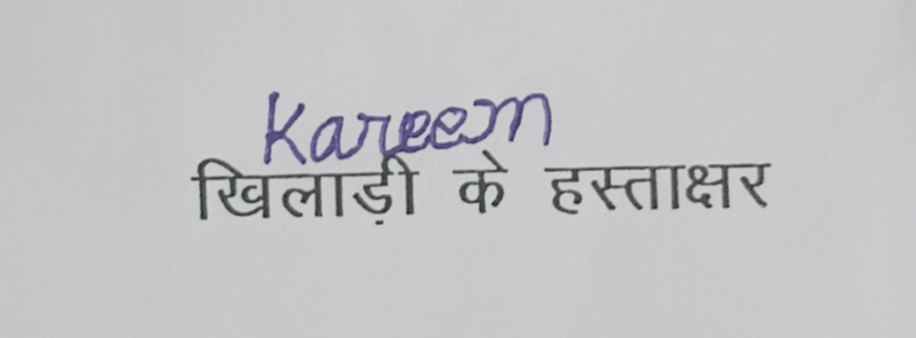 Kareem
खिलाड़ी के हस्ताक्षर